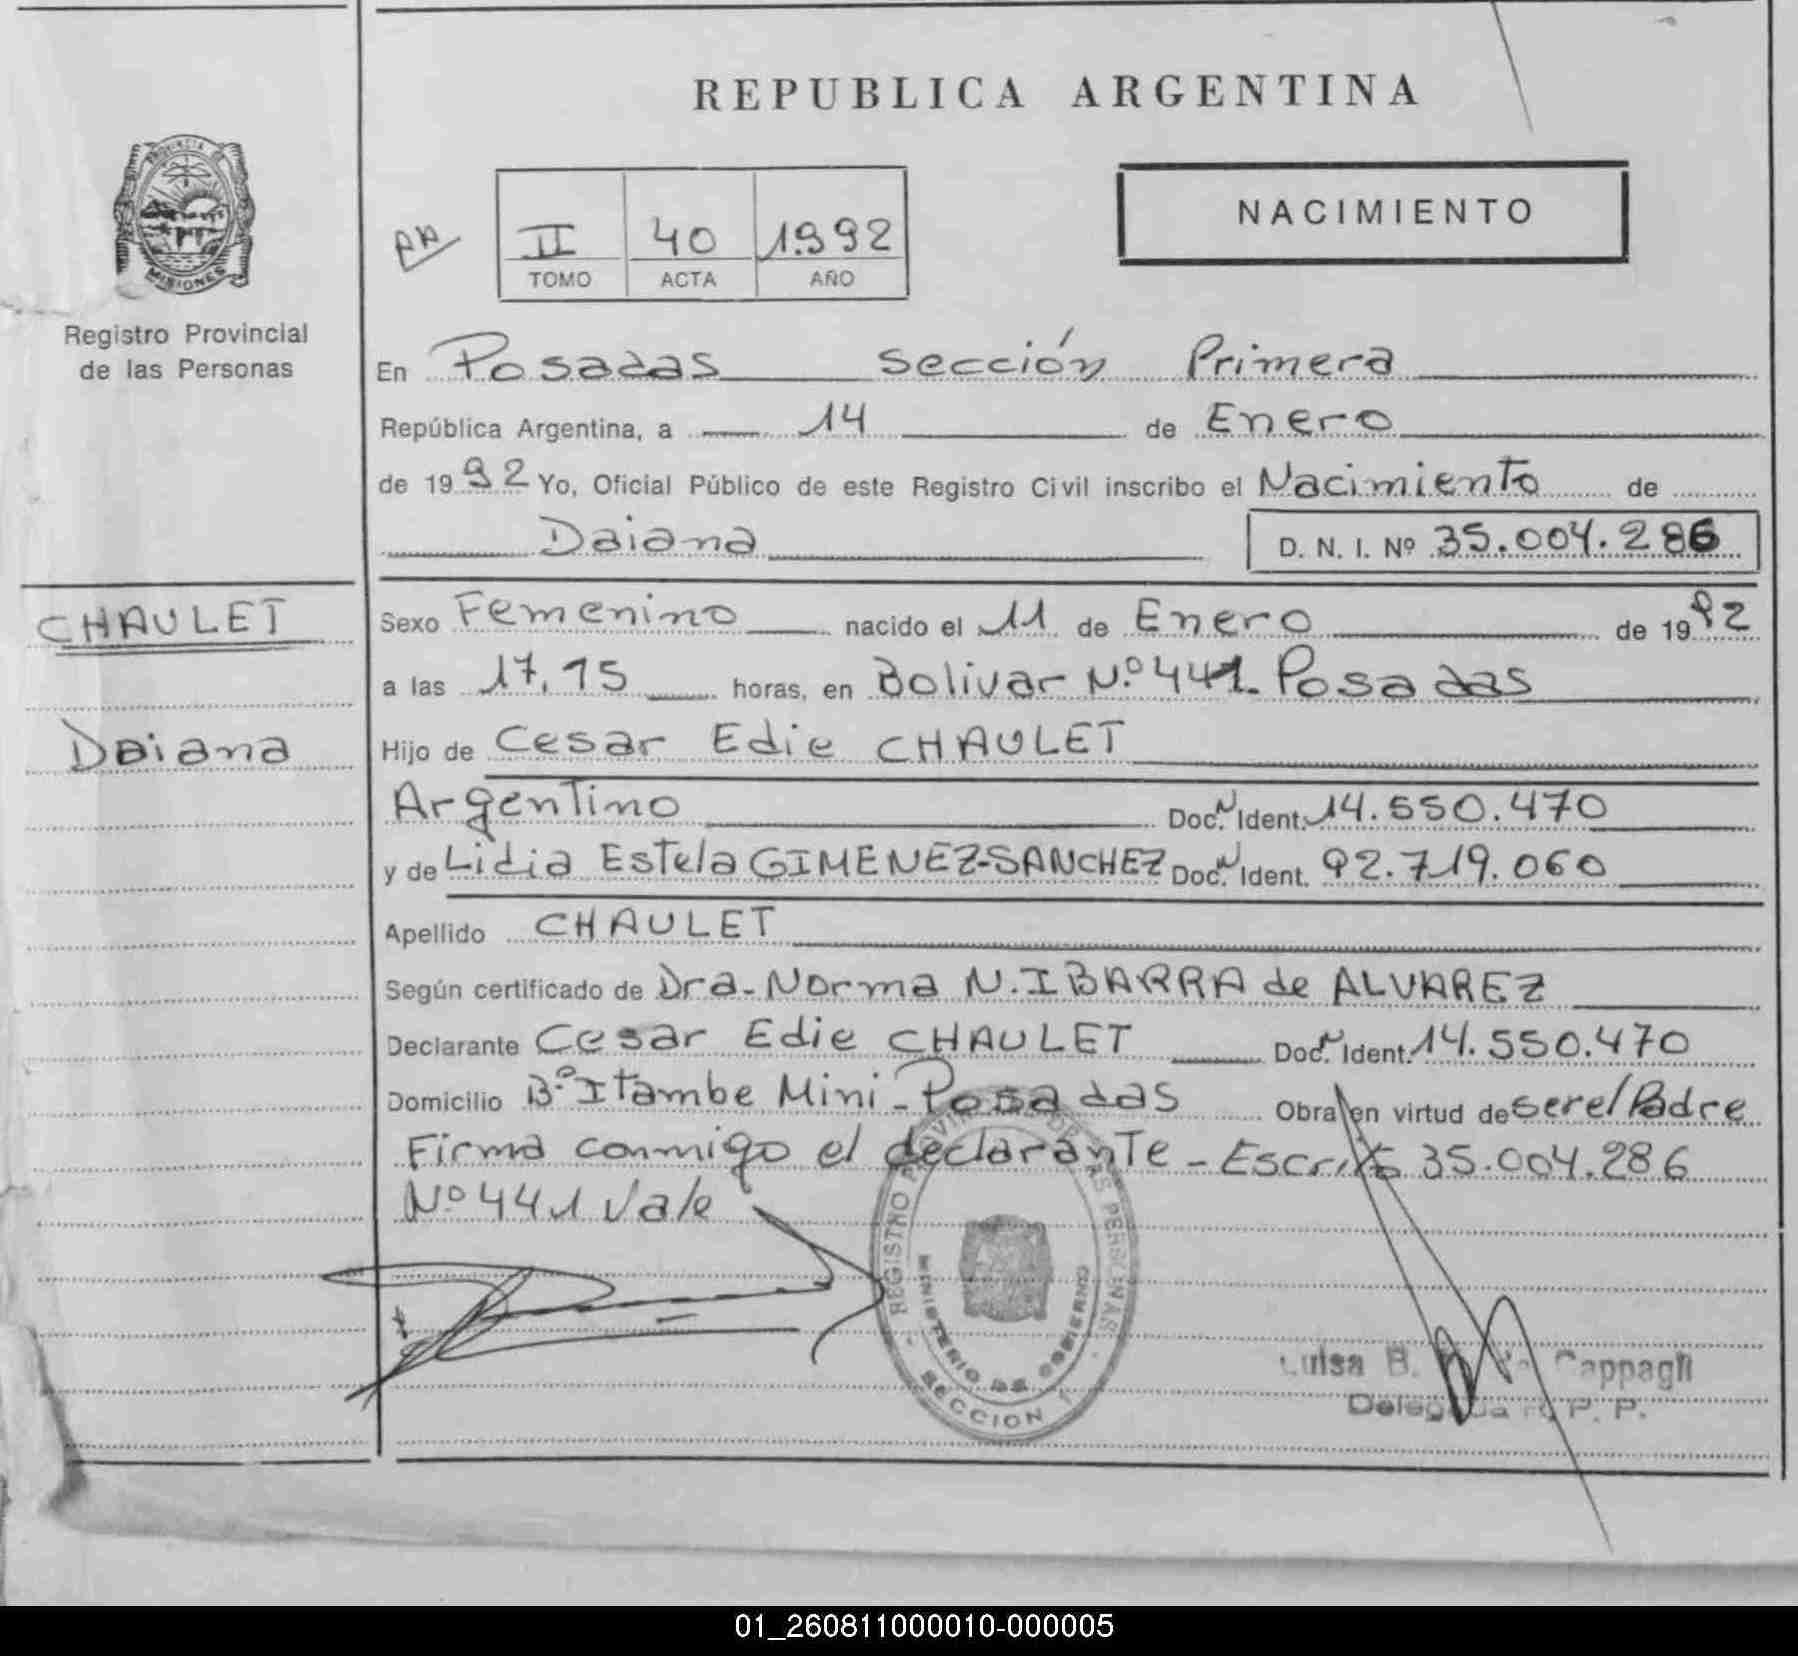 REPUBLICA ARGENTINA
PROVINCIA DE
MISIONES
Registro Provincial
de las Personas
NACIMIENTO
II 40 1.992
TOMO ACTA AÑO
En Posadas sección Primera
República Argentina, a 14 de Enero
de 1992 Yo, Oficial Público de este Registro Civil inscribo el Nacimiento de
Daiana D. N. I. Nº 35.004.286
CHAULET
Daiana
Sexo Femenino nacido el 11 de Enero de 1992
a las 17,15 horas, en Bolivar N.º 441. Posadas
Hijo de Cesar Edie CHAULET
Argentino Doc. N Ident. 14.550.470
y de Lidia Estela GIMENEZ-SANCHEZ Doc. N Ident. 92.719.060
Apellido CHAULET
Según certificado de Dra. Norma N. IBARRA de ALVAREZ
Declarante Cesar Edie CHAULET Doc. N Ident. 14.550.470
Domicilio Bº Itambe Mini - Posadas Obra en virtud de ser el Padre
Firma conmigo el declarante - Escrito 35.004.286
Nº 441 Vale
REGISTRO PROVINCIAL DE LAS PERSONAS
MINISTERIO DE GOBIERNO
SECCION 1
Luisa B. Cappagli
Delegada R. P. P.
01_260811000010-000005